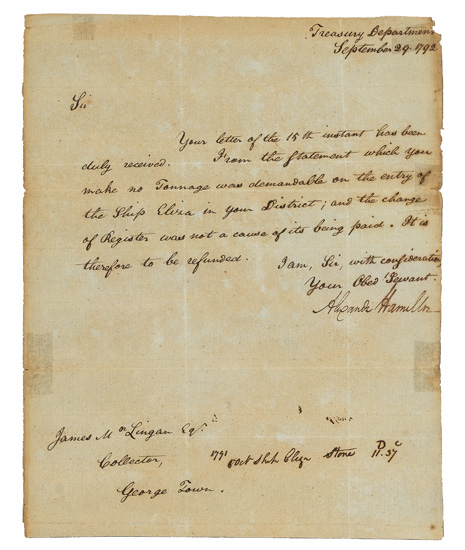 Treasury Department
September 29. 1792
Sir
Your letter of the 15th instant has been
duly received. From the Statement which you
make no Tonnage was demandable on the entry of
the Ship Elvira in your District; and the change
of Register was not a cause of its being paid. It is
therefore to be refunded.
I am, Sir, with consideration
Your Obed Servant.
Alexander Hamilton
James Mc Lingan Esqr.
Collector,
George Town.
1791 Oct Stone D. 57